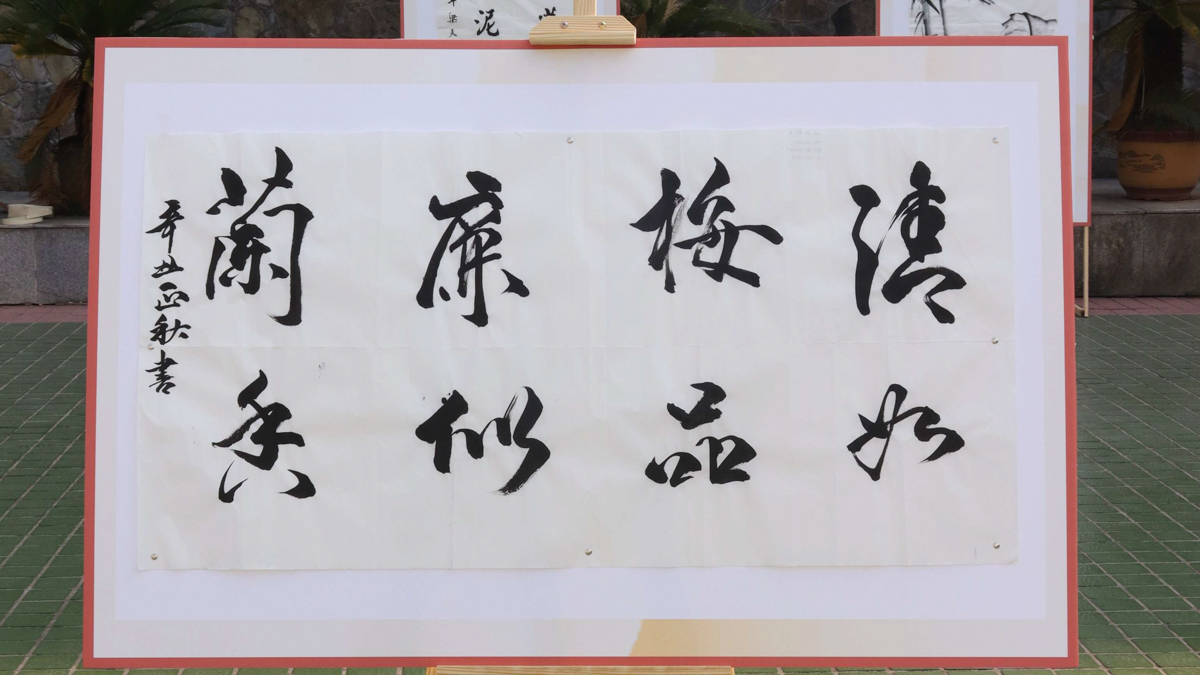 清如
梅品
廉似
蘭香
辛丑正秋書
泥